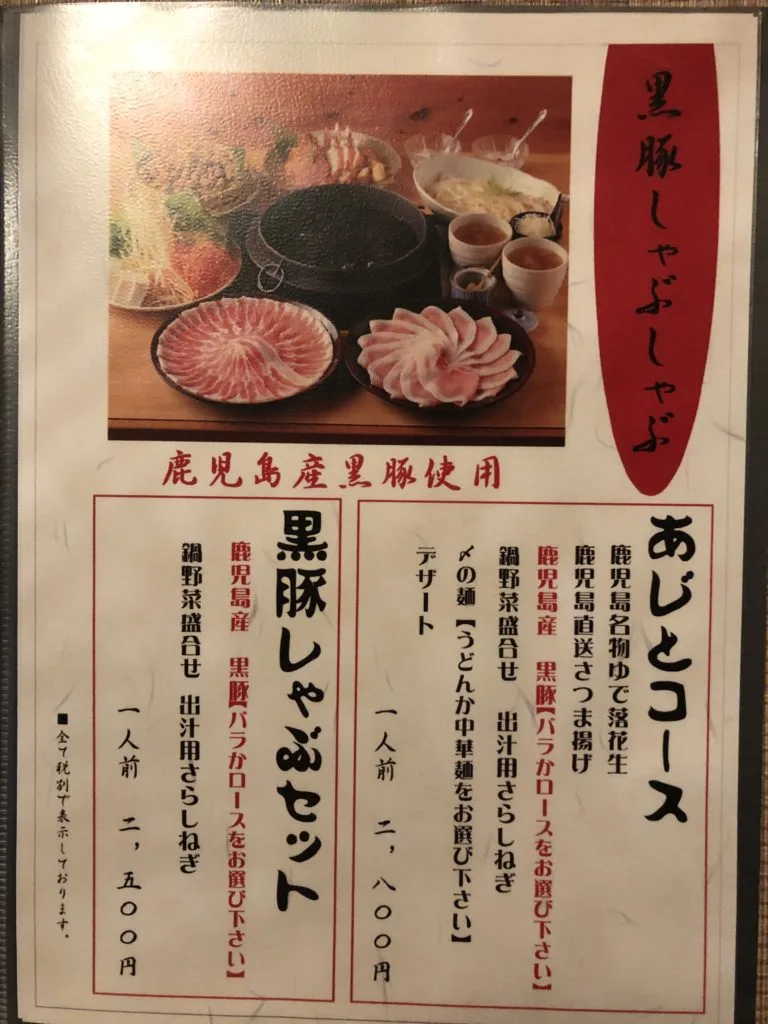 黒豚しゃぶしゃぶ
鹿児島産黒豚使用
あじとコース
鹿児島名物ゆで落花生
鹿児島直送さつま揚げ
鹿児島産　黒豚【バラかロースをお選び下さい】
鍋野菜盛合せ　出汁用さらしねぎ
〆の麺【うどんか中華麺をお選び下さい】
デザート
一人前　二，八〇〇円
黒豚しゃぶセット
鹿児島産　黒豚【バラかロースをお選び下さい】
鍋野菜盛合せ　出汁用さらしねぎ
一人前　二，五〇〇円
■全て税別で表示しております。